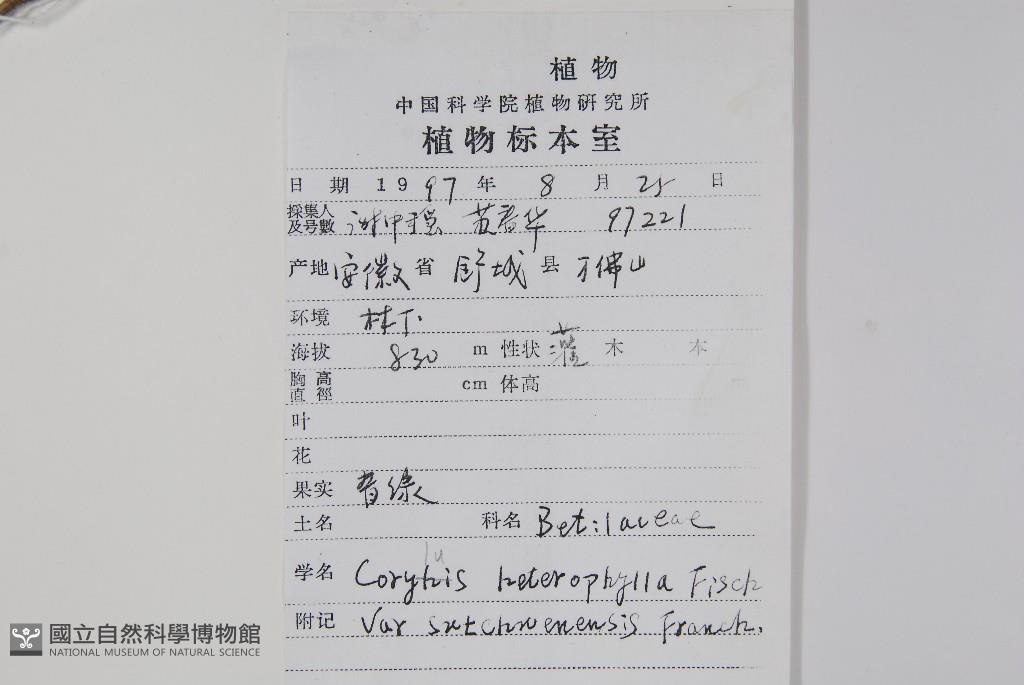 植物
中国科学院植物研究所
植物标本室
日期 1997 年 8 月 25 日
採集人及号數 97221
产地 安徽 省 舒城 县 万佛山
环境 林下
海拔 830 m 性状 灌 木 本
胸高直徑 cm 体高
叶
花
果实 青绿
土名 科名 Bet:laceae
lu
学名 Corylis heterophylla Fisch
附记 Var sutchuenensis Franch.
國立自然科學博物館
NATIONAL MUSEUM OF NATURAL SCIENCE